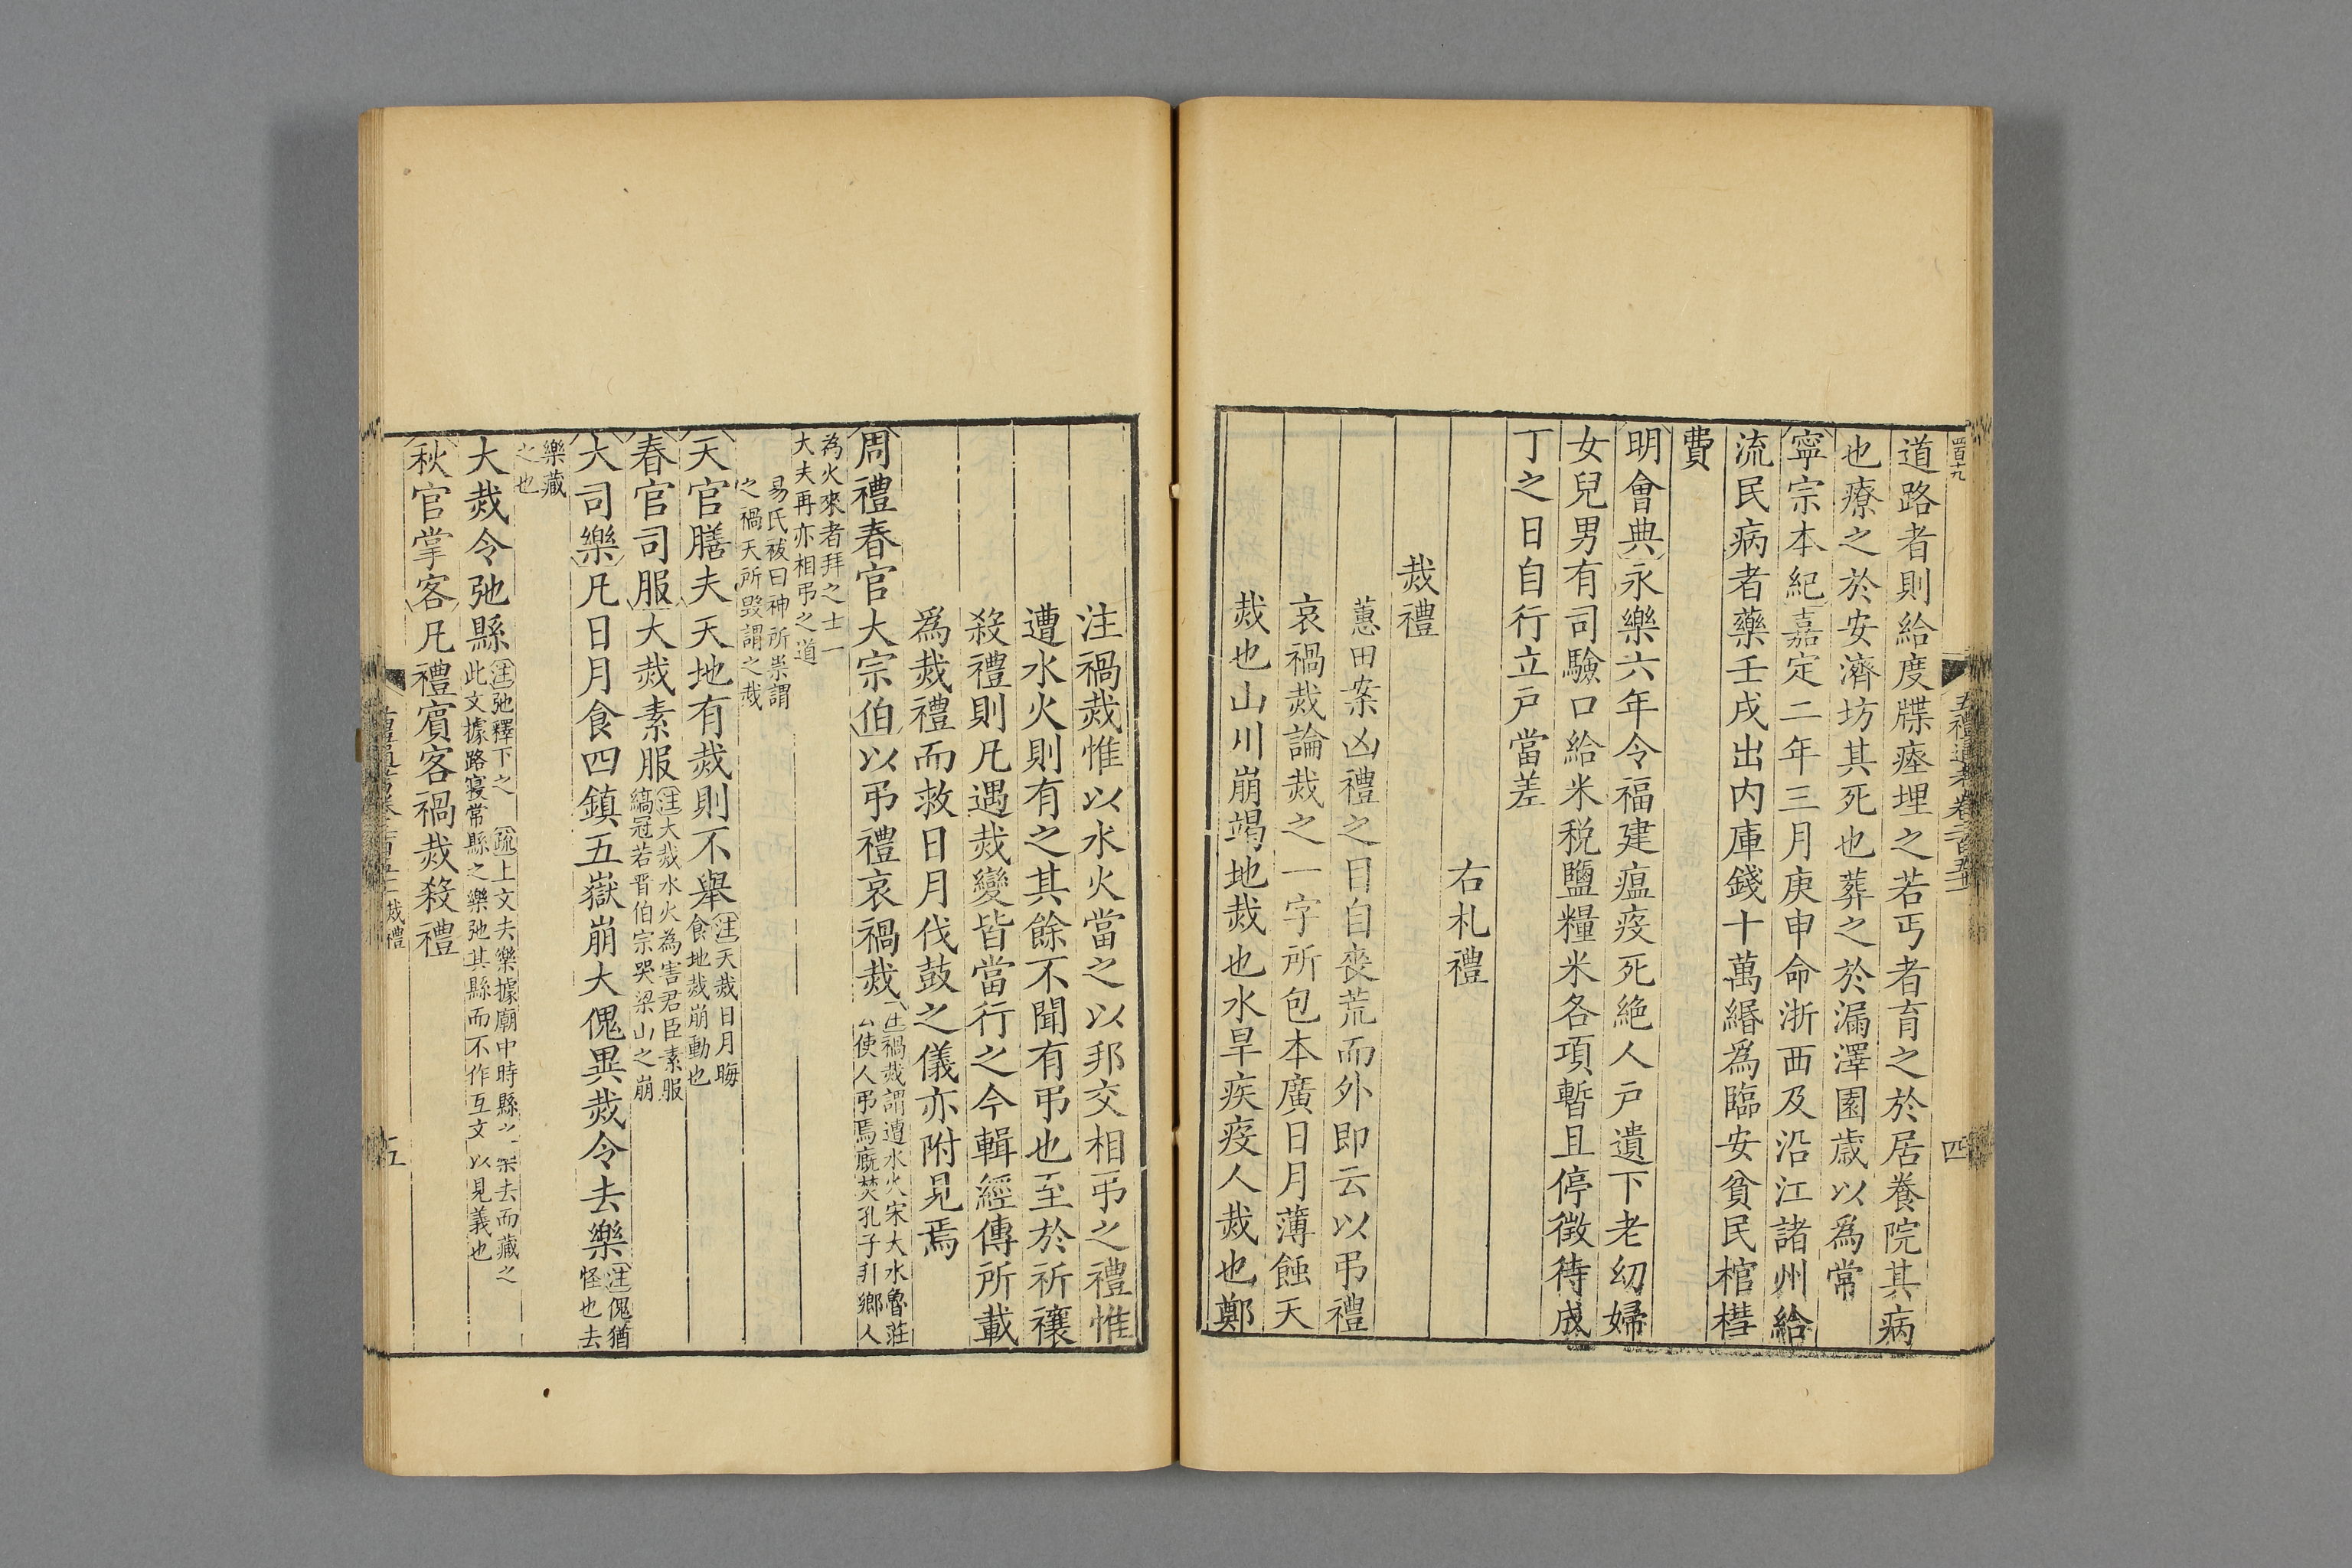 四百十九
五禮通考卷二百五十一
四
道路者則給度牒瘞埋之若丐者育之於居養院其病
也療之於安濟坊其死也葬之於漏澤園歲以爲常
寧宗本紀嘉定二年三月庚申命浙西及沿江諸州給
流民病者藥壬戌出内庫錢十萬緡爲臨安貧民棺槥
費
明會典永樂六年令福建瘟疫死絶人戸遺下老幼婦
女兒男有司驗口給米税鹽糧米各項暫且停徴待成
丁之日自行立戸當差
右札禮
烖禮
蕙田案凶禮之目自喪荒而外即云以弔禮
哀禍烖論烖之一字所包本廣日月薄蝕天
烖也山川崩竭地烖也水旱疾疫人烖也鄭
注禍烖惟以水火當之以邦交相弔之禮惟
遭水火則有之其餘不聞有弔也至於祈禳
殺禮則凡遇烖變皆當行之今輯經傳所載
爲烖禮而救日月伐鼓之儀亦附見焉
周禮春官大宗伯以弔禮哀禍烖注禍烖謂遭水火宋大水魯莊
公使人弔焉廐焚孔子拜鄉人
為火來者拜之士一
大夫再亦相弔之道
易氏祓曰神所祟謂
之禍天所毀謂之烖
天官膳夫天地有烖則不舉注天烖日月晦
食地烖崩動也
春官司服大烖素服注大烖水火為害君臣素服
縞冠若晋伯宗哭梁山之崩
大司樂凡日月食四鎮五嶽崩大傀異烖令去樂注傀猶
怪也去
樂藏
之也
大烖令弛縣注弛釋下之 疏上文去樂據廟中時縣之樂去而藏之
此文據路寢常縣之樂弛其縣而不作互文以見義也
秋官掌客凡禮賓客禍烖殺禮
烖禮
五